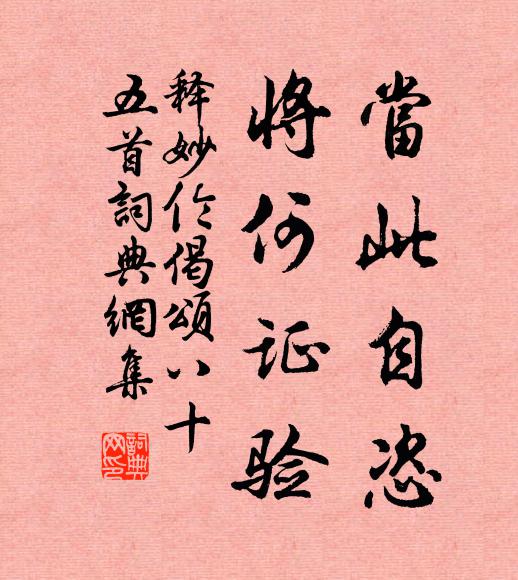 當此自恣
將何证验
释妙伦偈頌八十
五首詞典網集
詞典
网印